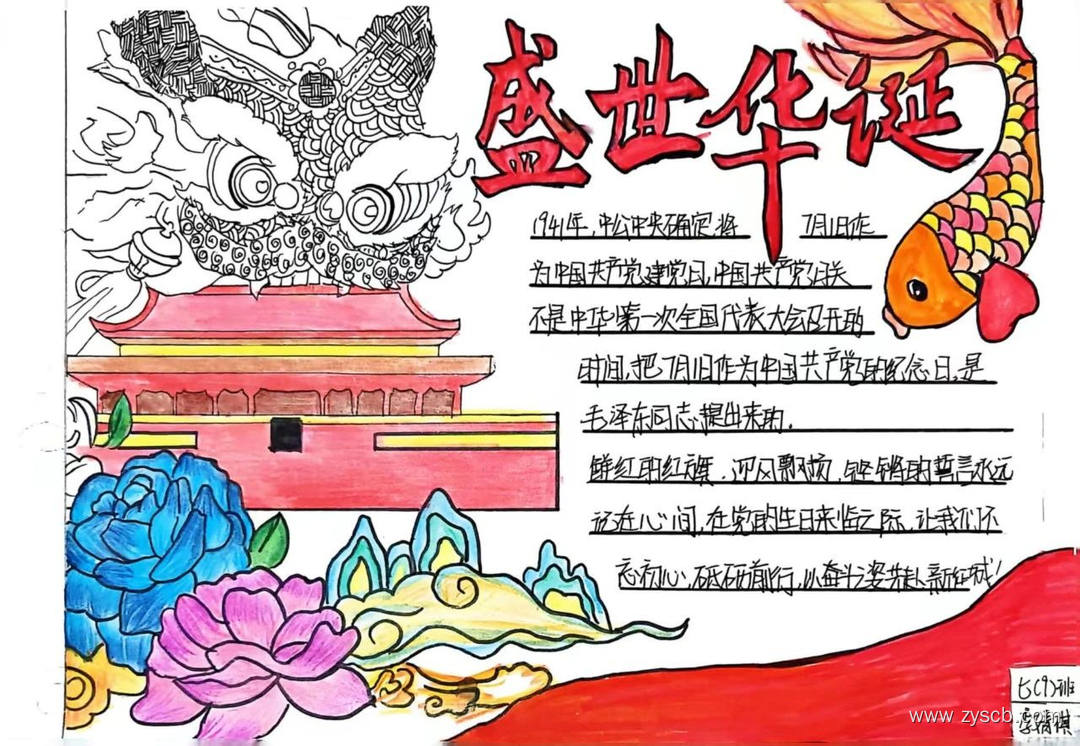 盛世华诞
1941年,中公中央确定将 7月1日作
为中国共产党建党日,中国共产党日关
不是中华第一次全国代表大会召开的
时间,把7月1日作为中国共产党的纪念日,是
毛泽东同志提出来的.
鲜红的红旗.迎风飘扬.铿锵的誓言永远
记在心间,在党的生日来临之际,让我们不
忘初心,砥砺前行,以奋斗之姿共赴新征城!
七(9)班
www.zyscb.com